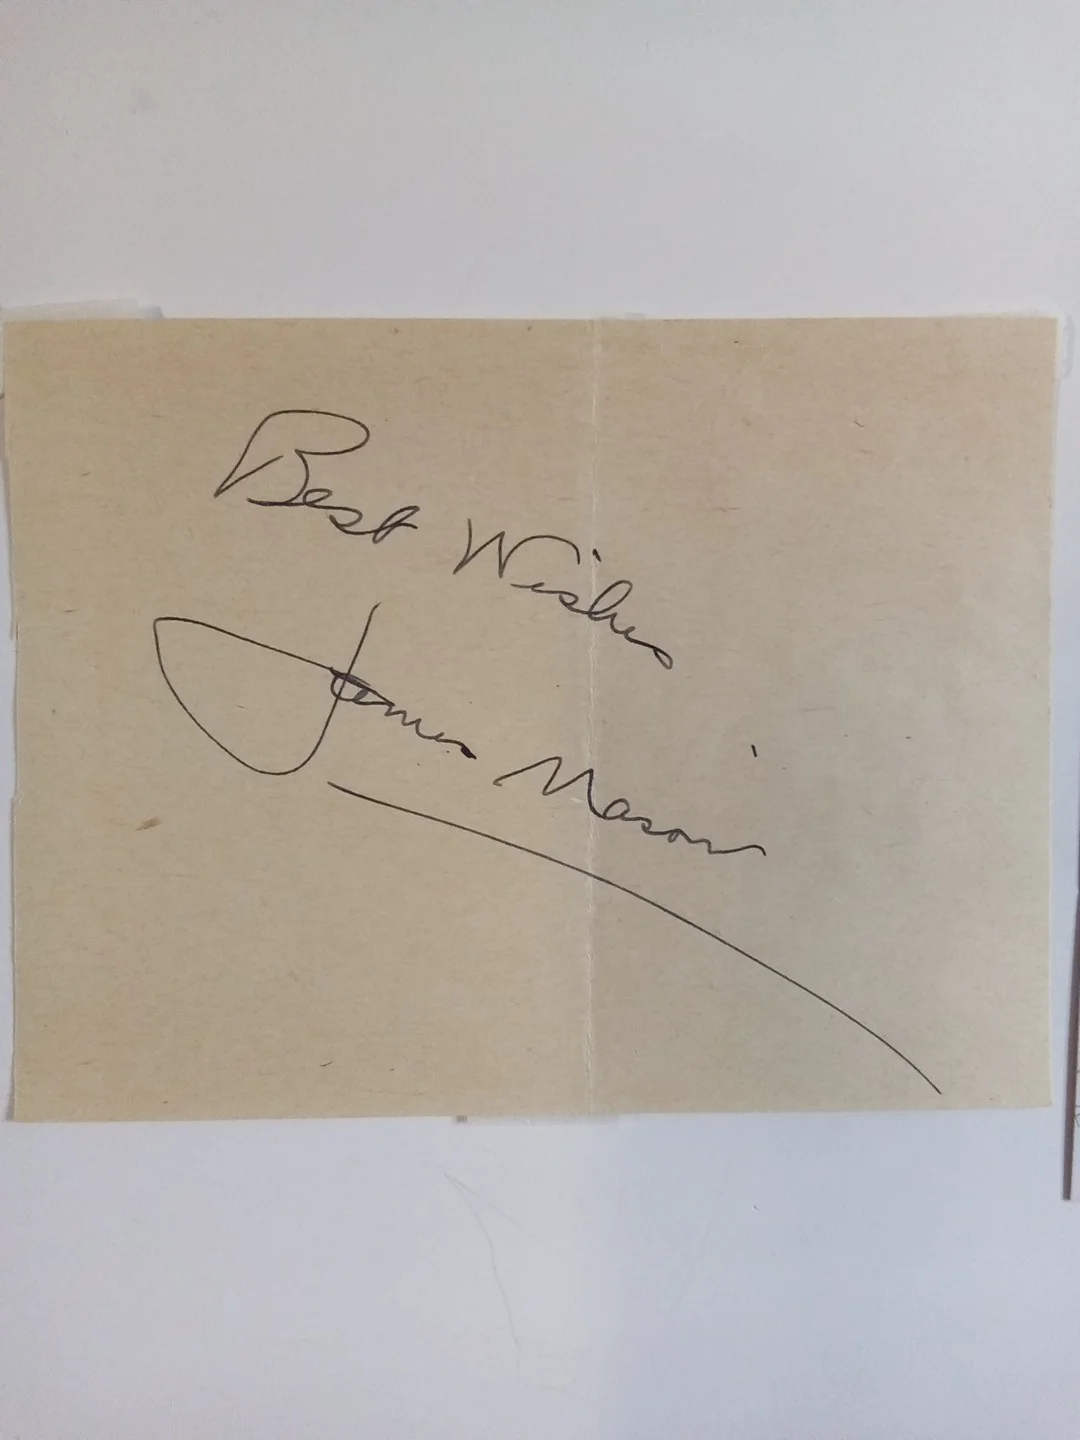 Best Wishes
James Mason